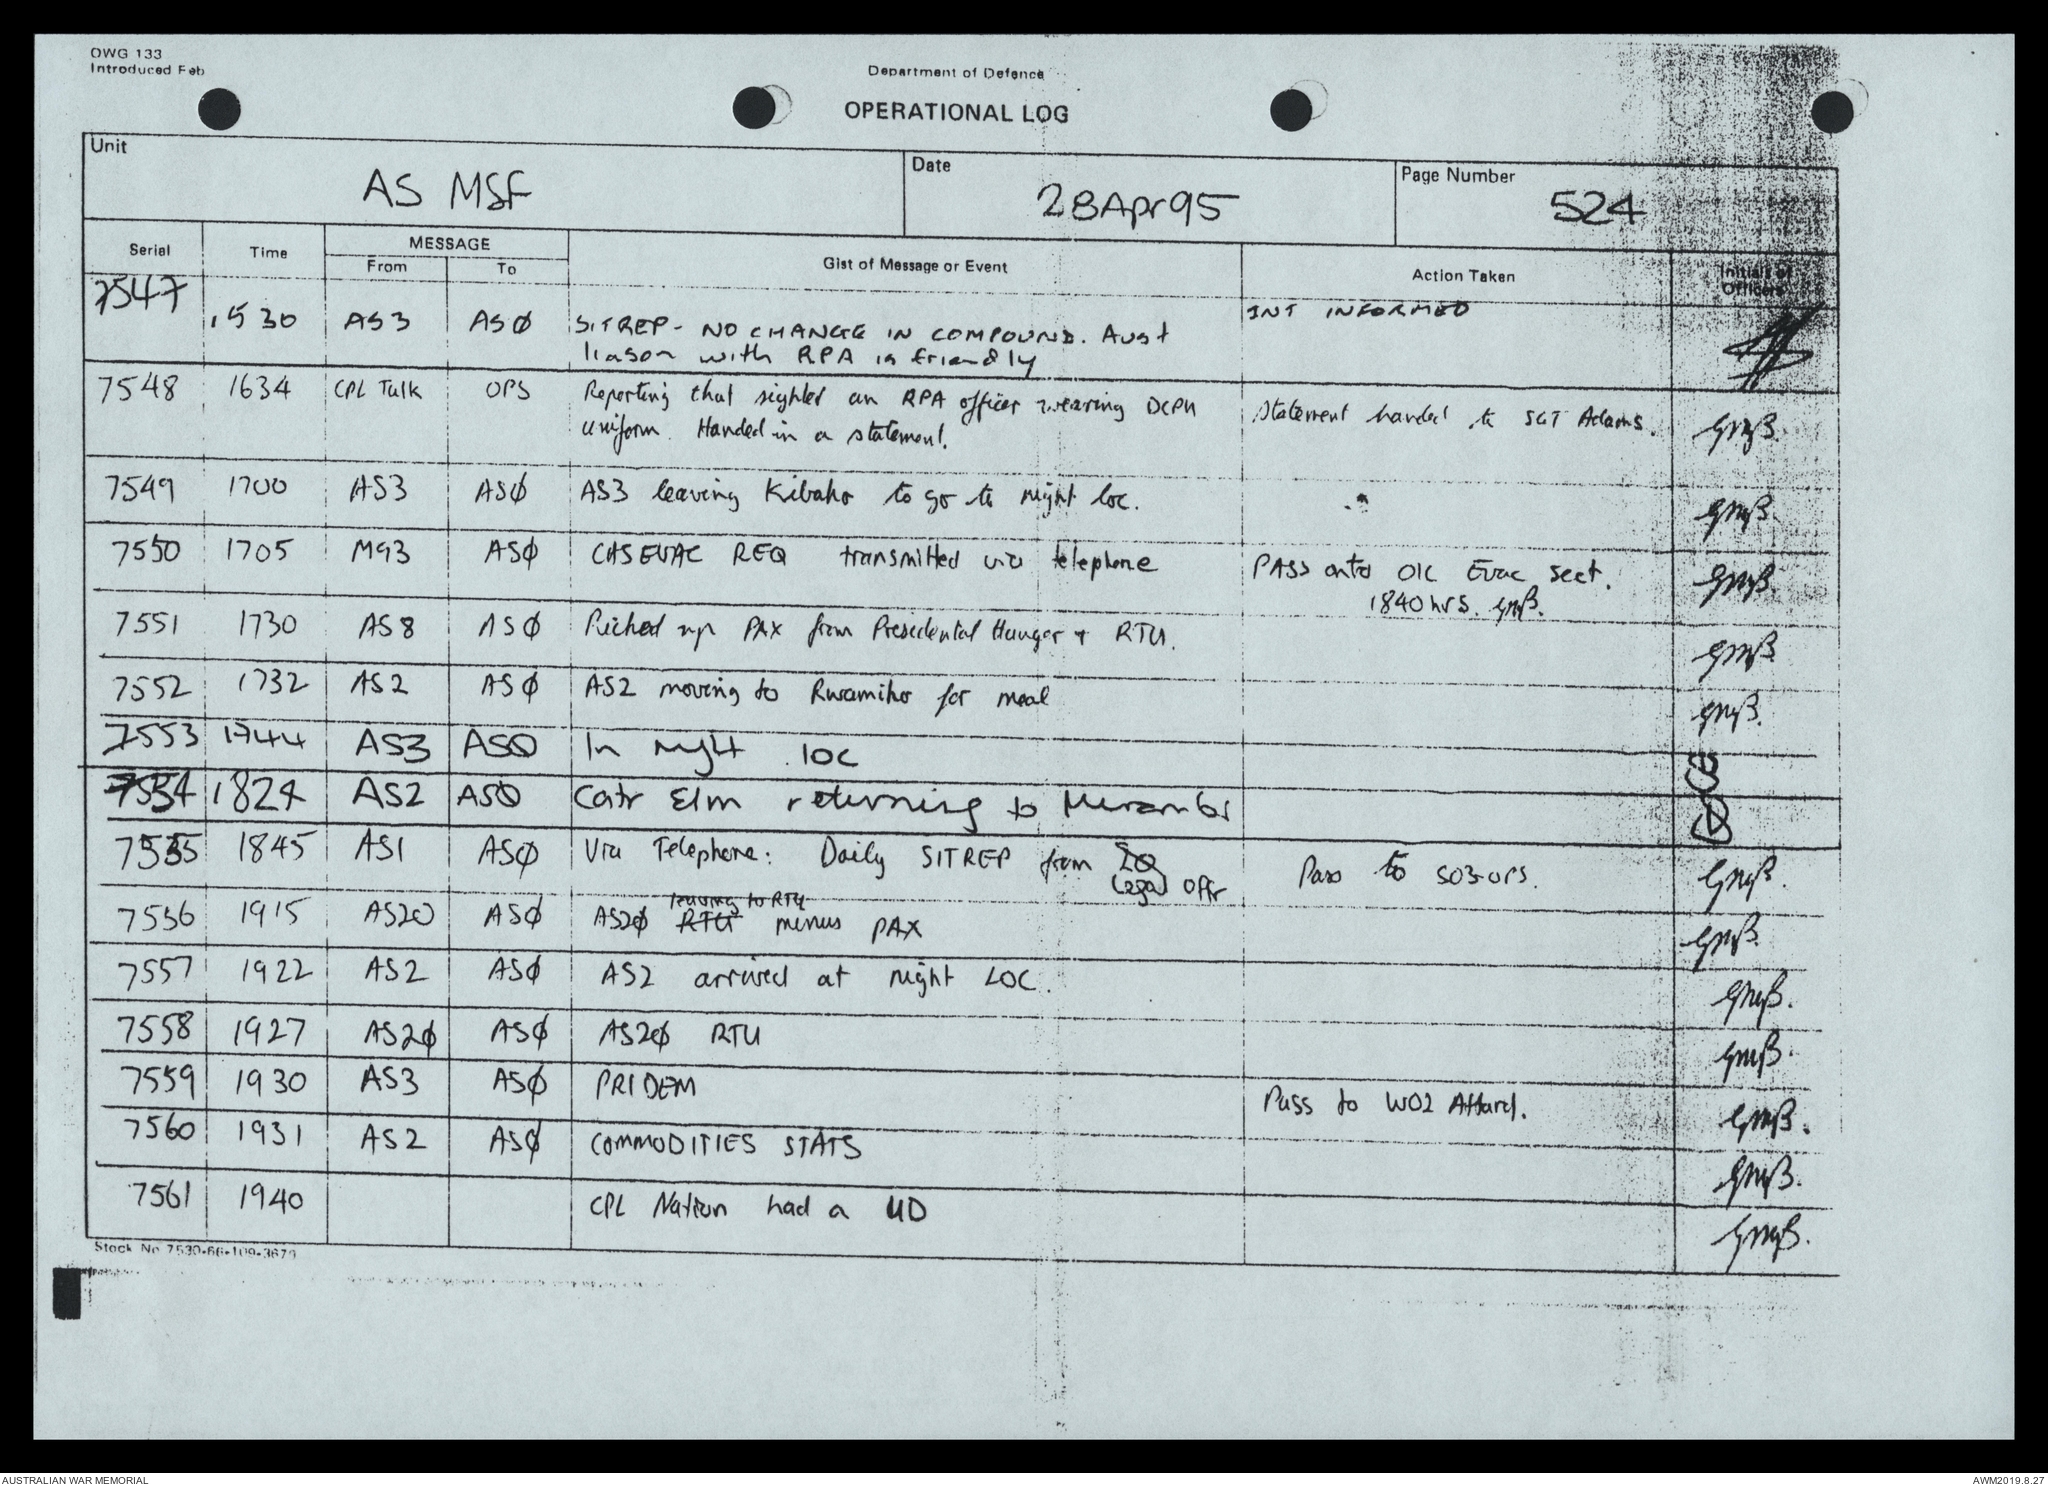 OWG 133
Introduced Feb
Department of Defence
OPERATIONAL LOG
Unit
AS MSF
Date
28Apr95
Page Number
524
Serial
Time
MESSAGE
From
To
Gist of Message or Event
Action Taken
Initials of
Officers
7547 1530 AS3 ASØ SITREP - NO CHANGE IN COMPOUND. Aust INT INFORMED
liason with RPA is friendly
7548 1634 CPL Tulk OPS Reporting that sighted an RPA officer wearing DCPU Statement handed to SGT Adams.
uniform. Handed in a statement.
7549 1700 AS3 ASØ AS3 leaving Kibaho to go to night loc.
7550 1705 MG3 ASØ CASEVAC REQ transmitted via telephone PASS onto OIC Evac sect.
1840hrs.
7551 1730 AS8 ASØ Picked up PAX from Presidental Hanger + RTU.
7552 1732 AS2 ASØ AS2 moving to Rwamiko for meal
7553 1744 AS3 ASØ In night loc
7554 1824 AS2 ASØ Elm returning to
7555 1845 AS1 ASØ Via Telephone: Daily SITREP from LO Pass to SO3-OPS.
Legal Offr
leaving to RTU
7556 1915 AS20 ASØ AS2Ø RTU minus PAX
7557 1922 AS2 ASØ AS2 arrived at night LOC.
7558 1927 AS2Ø ASØ AS2Ø RTU
7559 1930 AS3 ASØ PRIDEM Pass to WO2 Attard.
7560 1931 AS2 ASØ COMMODITIES STATS
7561 1940 CPL Nation had a UD
Stock No 7530-66-109-3679
AUSTRALIAN WAR MEMORIAL
AWM2019.8.27